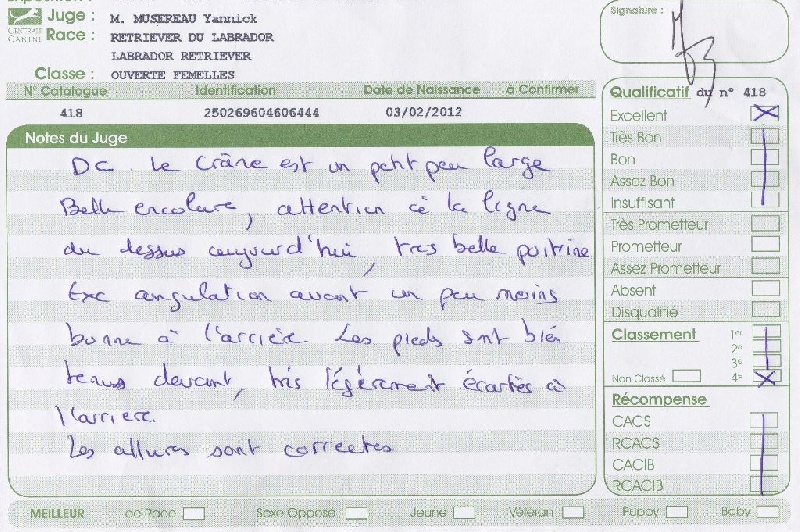 Juge : M. MUSEREAU Yannick
Race : RETRIEVER DU LABRADOR
LABRADOR RETRIEVER
Classe : OUVERTE FEMELLES
Signature :
N° Catalogue Identification Date de Naissance à Confirmer
418 250269604606444 03/02/2012
Notes du Juge
DC le crâne est un petit peu large
Belle encolure, attention à la ligne
du dessus aujourd'hui, tres belle poitrine
Exc angulation avant un peu moins
bonne à l'arrière. Les pieds sont bien
tenus devant, très légèrement écartés à
l'arriere.
Les allures sont correctes
Qualificatif du n° 418
Excellent
Très Bon
Bon
Assez Bon
Insuffisant
Très Prometteur
Prometteur
Assez Prometteur
Absent
Disqualifié
Classement 1er
2e
3e
Non Classé 4e
Récompense
CACS
RCACS
CACIB
RCACIB
MEILLEUR de Race Sexe Opposé Jeune Vétéran Puppy Baby